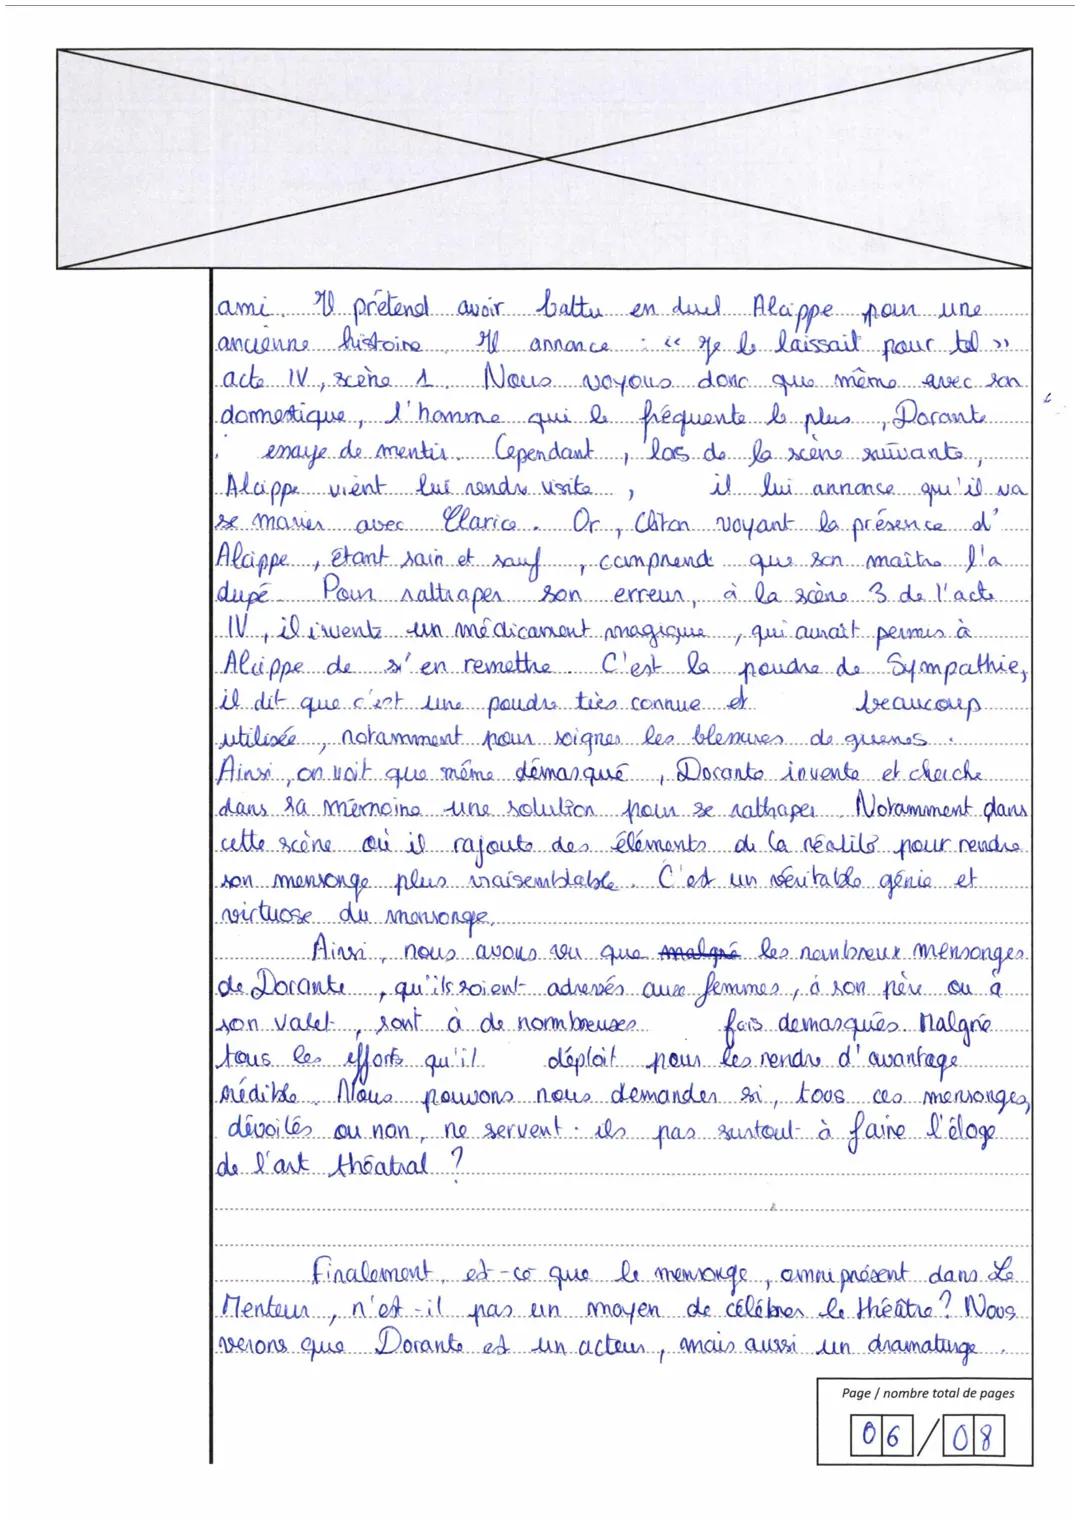 ami. Il prétend avoir battu en duel Alcippe pour une
ancienne histoire. Il annonce : « Je le laissait pour tel »
acte IV, scène 1. Nous voyous donc que même avec son
domestique, l'homme qui le fréquente le plus, Dorante
essaye de mentir. Cependant, lors de la scène suivante,
Alcippe vient lui rendre visite, il lui annonce qu'il va
se marier avec Clarice. Or, Cliton voyant la présence d'
Alcippe, étant sain et sauf, comprend que son maître l'a
dupé. Pour rattraper son erreur, à la scène 3 de l'acte
IV, il invente un médicament magique, qui aurait permis à
Alcippe de s'en remettre. C'est la poudre de Sympathie,
il dit que c'est une poudre très connue et beaucoup
utilisée, notamment pour soigner les blessures de guerres.
Ainsi, on voit que même démasqué, Dorante invente et cherche
dans sa mémoire une solution pour se rattraper. Notamment dans
cette scène où il rajoute des éléments de la réalité pour rendre
son mensonge plus vraisemblable. C'est un véritable génie et
virtuose du mensonge.
Ainsi, nous avons vu que malgré les nombreux mensonges
de Dorante, qu'ils soient adressés aux femmes, à son père ou à
son valet, sont à de nombreuses fois démasqués. Malgré
tous les efforts qu'il déploit pour les rendre d'avantage
crédible. Nous pouvons nous demander si, tous ces mensonges,
dévoilés ou non, ne servent-ils pas surtout à faire l'éloge
de l'art théatral ?
Finalement, est-ce que le mensonge, omniprésent dans Le
Menteur, n'est-il pas un moyen de célébrer le théâtre ? Nous
verons que Dorante est un acteur, mais aussi un dramaturge.
Page / nombre total de pages
06 / 08